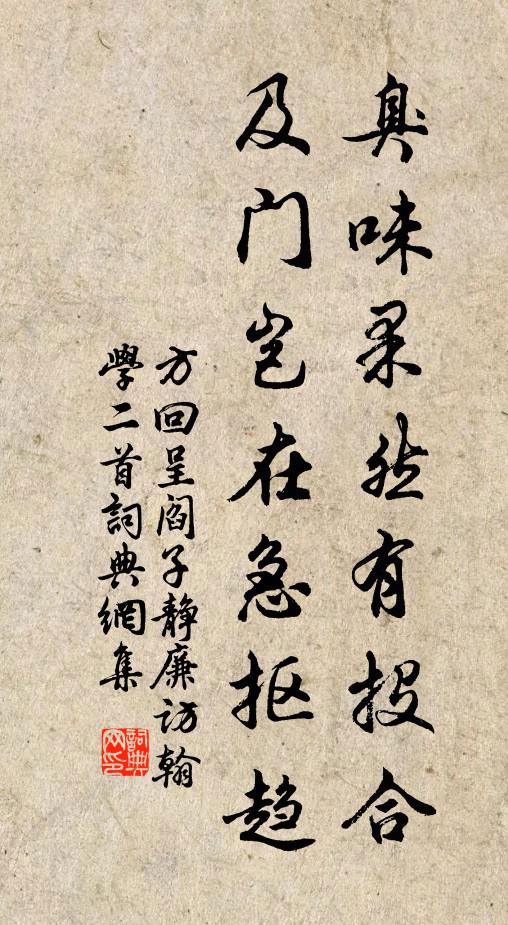 臭味果然有投合
及门岂在急抠趋
方回呈阎子静廉访翰
學二首詞典網集
詞典網印